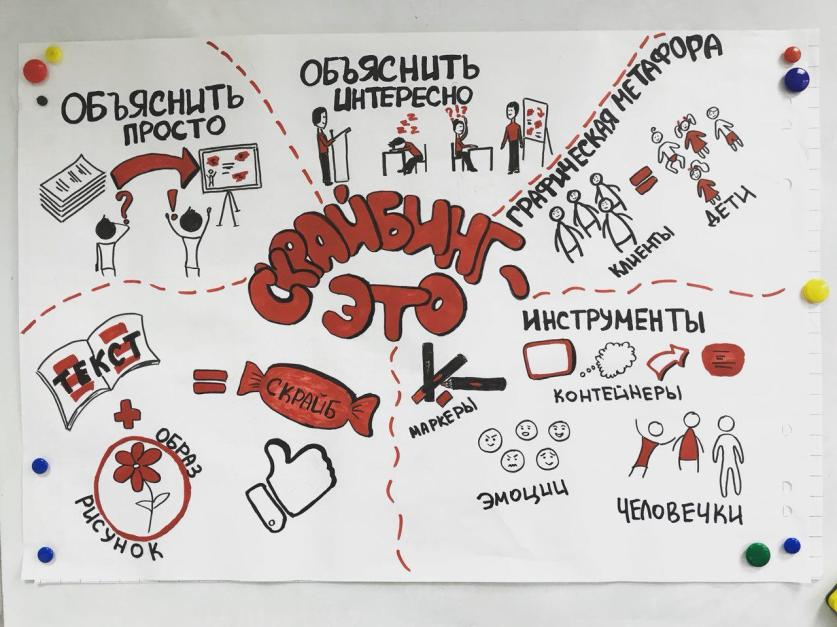 ОБЪЯСНИТЬ
ПРОСТО
?
!
ОБЪЯСНИТЬ
ИНТЕРЕСНО
Z Z Z
?!?
ГРАФИЧЕСКАЯ МЕТАФОРА
=
КЛИЕНТЫ
ДЕТИ
СКРАЙБИНГ,
ЭТО
ТЕКСТ
+
ОБРАЗ
РИСУНОК
=
СКРАЙБ
ИНСТРУМЕНТЫ
МАРКЕРЫ
КОНТЕЙНЕРЫ
ЭМОЦИИ
ЧЕЛОВЕЧКИ